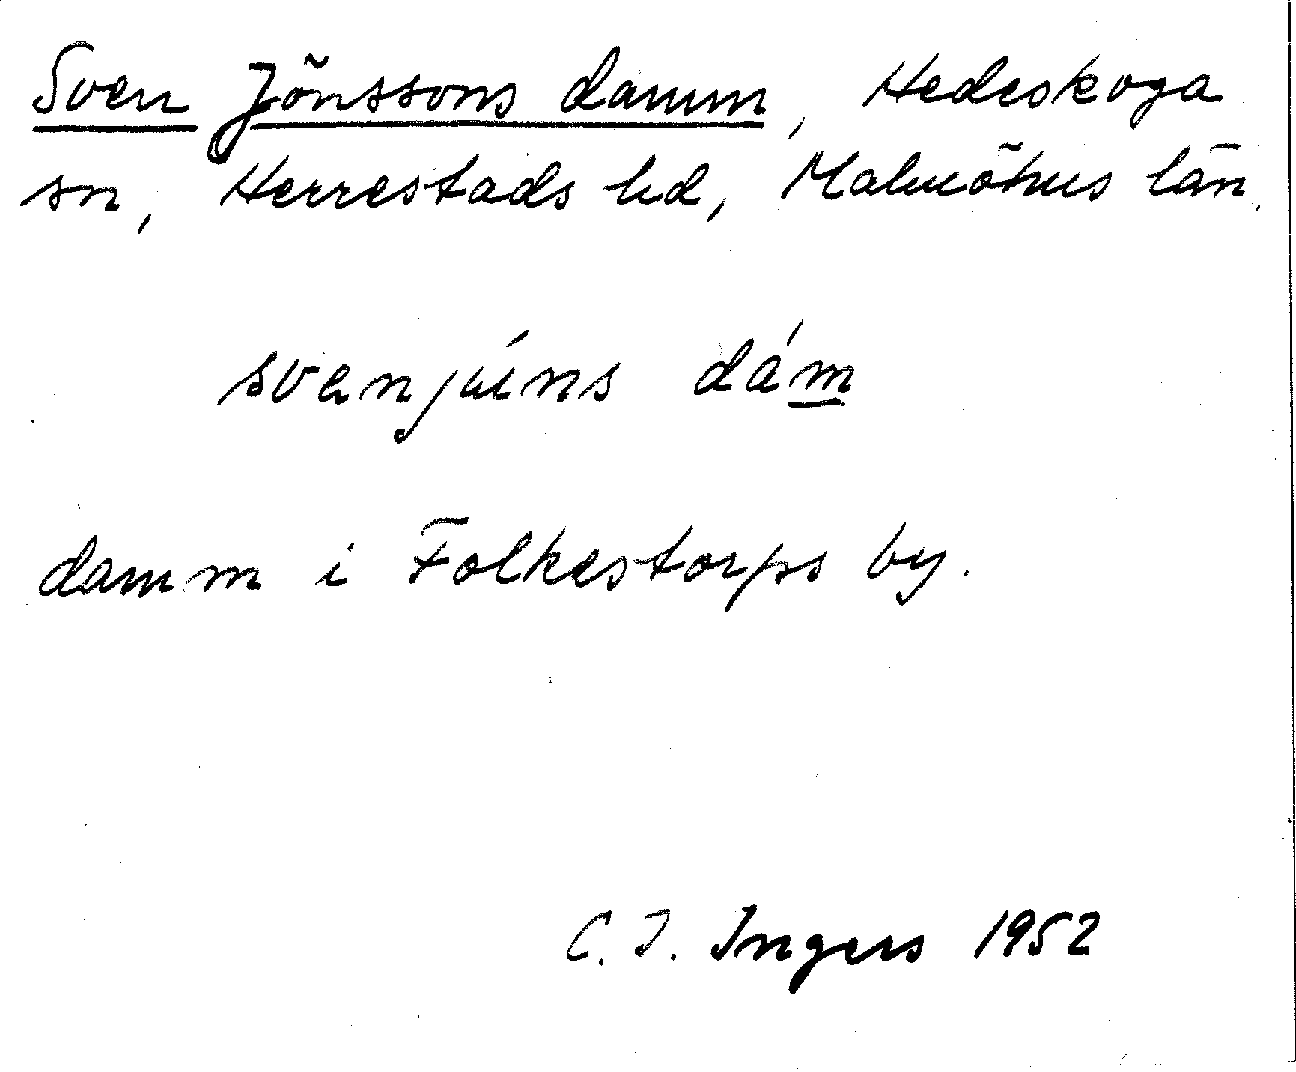 Sven Jönssons damm, Hedeskoga
sn, Herrestads hd, Malmöhus län.
svenjúns dám
damm i Folkestorps by.
C. I. Ingers 1952